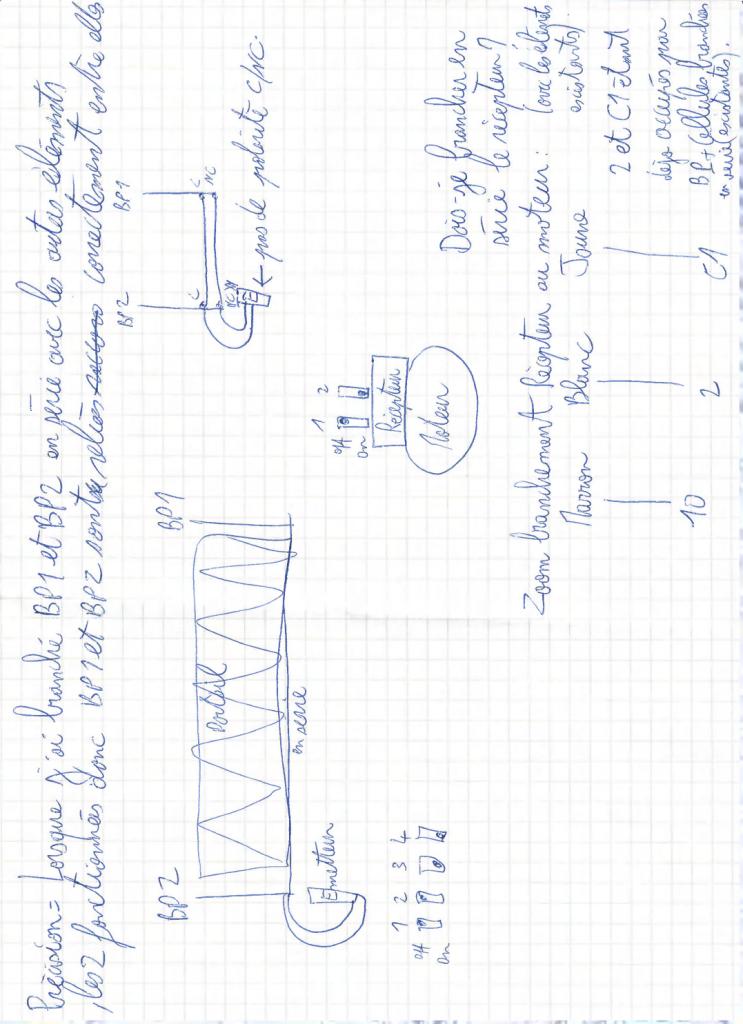 Précision = Lorsque j'ai branché BP1 et BP2 en série avec les autres éléments
, les 2 fonctionnées donc BP1 et BP2 sont reliés correctement entre elles
BP2
BP1
Portail
en série
Emetteur
1 2 3 4
off
on
BP2
BP1
C
C
NC
NC
E
← pas de polarité C/NC.
off
on
1 2
Récepteur
Moteur
Dois-je brancher en
série le récepteur?
(avec les éléments
existants).
Zoom branchement Récepteur au moteur:
Marron Blanc Jaune
10 2 C1
2 et C1 étant
déjà occupés par
BP + Cellules branchées
en série (existantes).